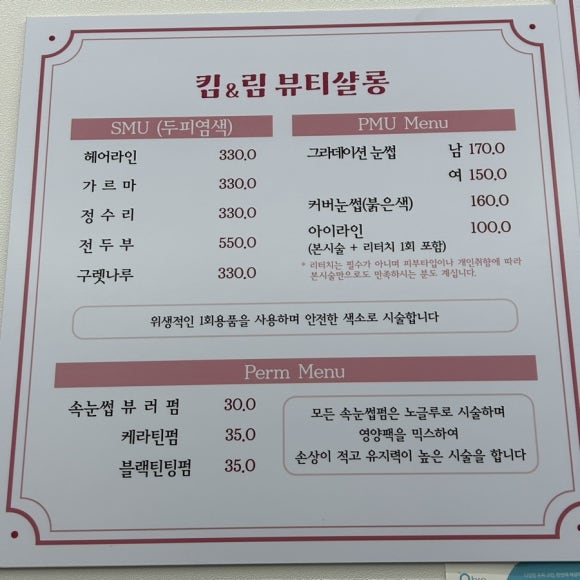 킴&림 뷰티샬롱
SMU (두피염색)
헤어라인 330.0
가 르 마 330.0
정 수 리 330.0
전 두 부 550.0
구렛나루 330.0
PMU Menu
그라데이션 눈썹 남 170.0
여 150.0
커버눈썹(붉은색) 160.0
아이라인 100.0
(본시술 + 리터치 1회 포함)
* 리터치는 필수가 아니며 피부타입이나 개인취향에 따라
본시술만으로도 만족하시는 분도 계십니다.
위생적인 1회용품을 사용하며 안전한 색소로 시술합니다
Perm Menu
속눈썹 뷰 러 펌 30.0
케라틴펌 35.0
블랙틴팅펌 35.0
모든 속눈썹펌은 노글루로 시술하며
영양팩을 믹스하여
손상이 적고 유지력이 높은 시술을 합니다